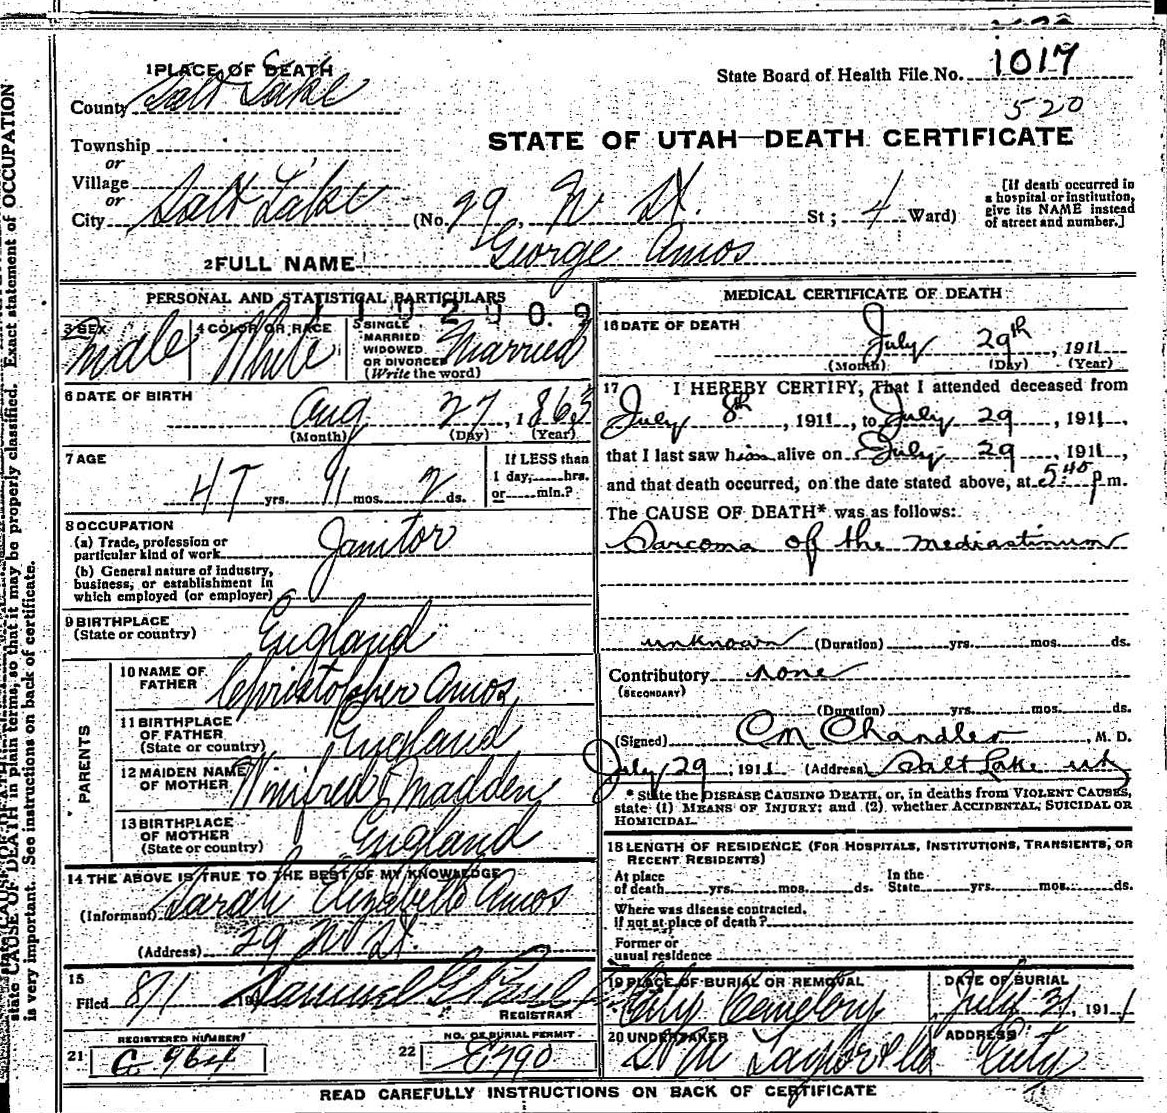 1 PLACE OF DEATH
State Board of Health File No. 1017
County Salt Lake
520
STATE OF UTAH—DEATH CERTIFICATE
Township
or
Village
or
City Salt Lake (No. 29, N St. St; 4 Ward)
[If death occurred in a hospital or institution, give its NAME instead of street and number.]
2 FULL NAME George Amos
PERSONAL AND STATISTICAL PARTICULARS
110209
3 SEX Male
4 COLOR OR RACE White
5 SINGLE MARRIED WIDOWED OR DIVORCED (Write the word) Married
6 DATE OF BIRTH Aug 27, 1863
(Month) (Day) (Year)
7 AGE 47 yrs. 11 mos. 2 ds.
If LESS than 1 day, hrs. or min.?
8 OCCUPATION
(a) Trade, profession or particular kind of work Janitor
(b) General nature of industry, business, or establishment in which employed (or employer)
9 BIRTHPLACE (State or country) England
PARENTS
10 NAME OF FATHER Christopher Amos
11 BIRTHPLACE OF FATHER (State or country) England
12 MAIDEN NAME OF MOTHER Winifred Madden
13 BIRTHPLACE OF MOTHER (State or country) England
14 THE ABOVE IS TRUE TO THE BEST OF MY KNOWLEDGE
(Informant) Sarah Elizabeth Amos
(Address) 29 N St.
15 Filed 8/1 191 Samuel G. Paul
REGISTRAR
21 REGISTERED NUMBER C 964
22 NO. OF BURIAL PERMIT E790
MEDICAL CERTIFICATE OF DEATH
16 DATE OF DEATH July 29th, 1911
(Month) (Day) (Year)
17 I HEREBY CERTIFY, That I attended deceased from
July 8th, 1911, to July 29, 1911,
that I last saw him alive on July 29, 1911,
and that death occurred, on the date stated above, at 5:40 p m.
The CAUSE OF DEATH* was as follows:
Sarcoma of the mediastinum
unknown (Duration) yrs. mos. ds.
Contributory none
(SECONDARY)
(Duration) yrs. mos. ds.
(Signed) CM Chandler, M. D.
July 29, 1911 (Address) Salt Lake Ut
* State the DISEASE CAUSING DEATH, or, in deaths from VIOLENT CAUSES, state (1) MEANS OF INJURY; and (2) whether ACCIDENTAL, SUICIDAL OR HOMICIDAL.
18 LENGTH OF RESIDENCE (FOR HOSPITALS, INSTITUTIONS, TRANSIENTS, OR RECENT RESIDENTS)
At place of death yrs. mos. ds. In the State yrs. mos. ds.
Where was disease contracted, If not at place of death?
Former or usual residence
19 PLACE OF BURIAL OR REMOVAL City Cemetery
DATE OF BURIAL July 31, 1911
20 UNDERTAKER S M Taylor & Co
ADDRESS City
READ CAREFULLY INSTRUCTIONS ON BACK OF CERTIFICATE
state CAUSE OF DEATH in plain terms, so that it may be properly classified. Exact statement of OCCUPATION
is very important. See instructions on back of certificate.